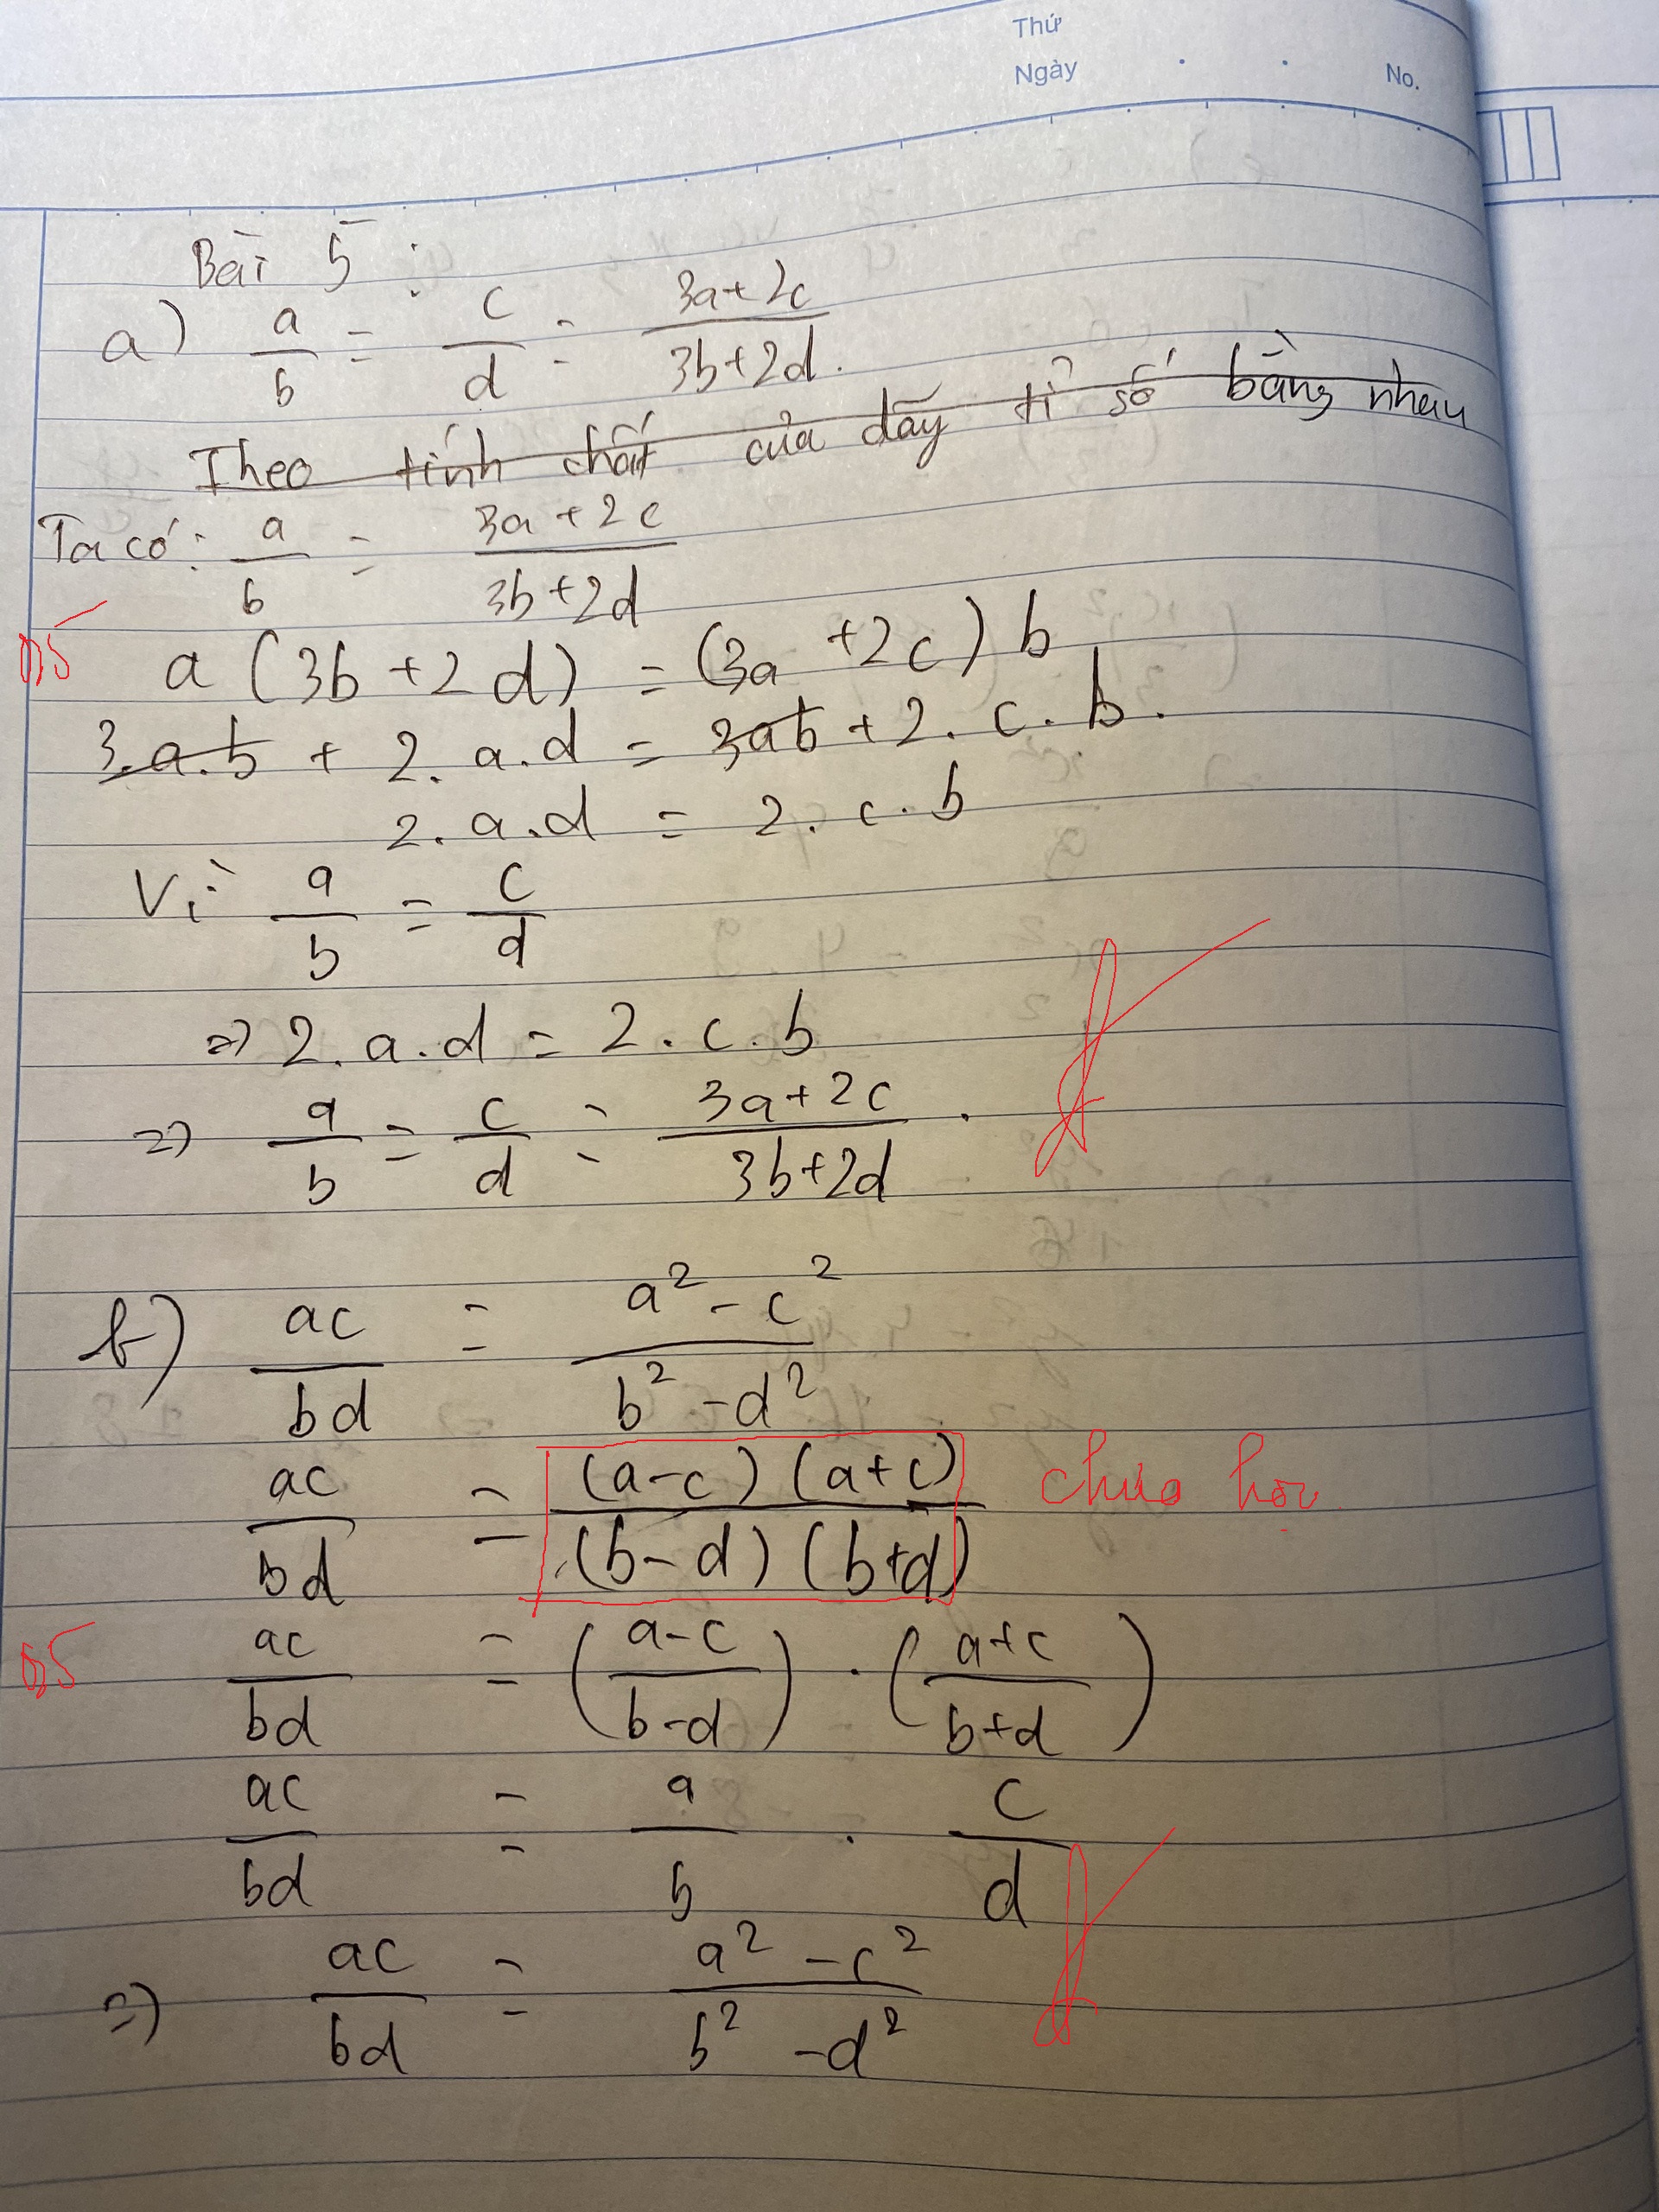 Thứ
Ngày No.
Bài 5 :
a) a/b = c/d = (3a+2c)/(3b+2d).
Theo tính chất của dãy tỉ số bằng nhau
Ta có: a/b = (3a+2c)/(3b+2d)
0,5
a (3b+2d) = (3a+2c) b
3.a.b + 2.a.d = 3ab + 2.c.b.
2.a.d = 2.c.b
Vì a/b = c/d
=> 2.a.d = 2.c.b
=> a/b = c/d = (3a+2c)/(3b+2d).
b) ac/bd = (a²-c²)/(b²-d²)
ac/bd = (a-c)(a+c)/(b-d)(b+d) chưa học
0,5 ac/bd = ((a-c)/(b-d)) . ((a+c)/(b+d))
ac/bd = a/b . c/d
=> ac/bd = (a²-c²)/(b²-d²)